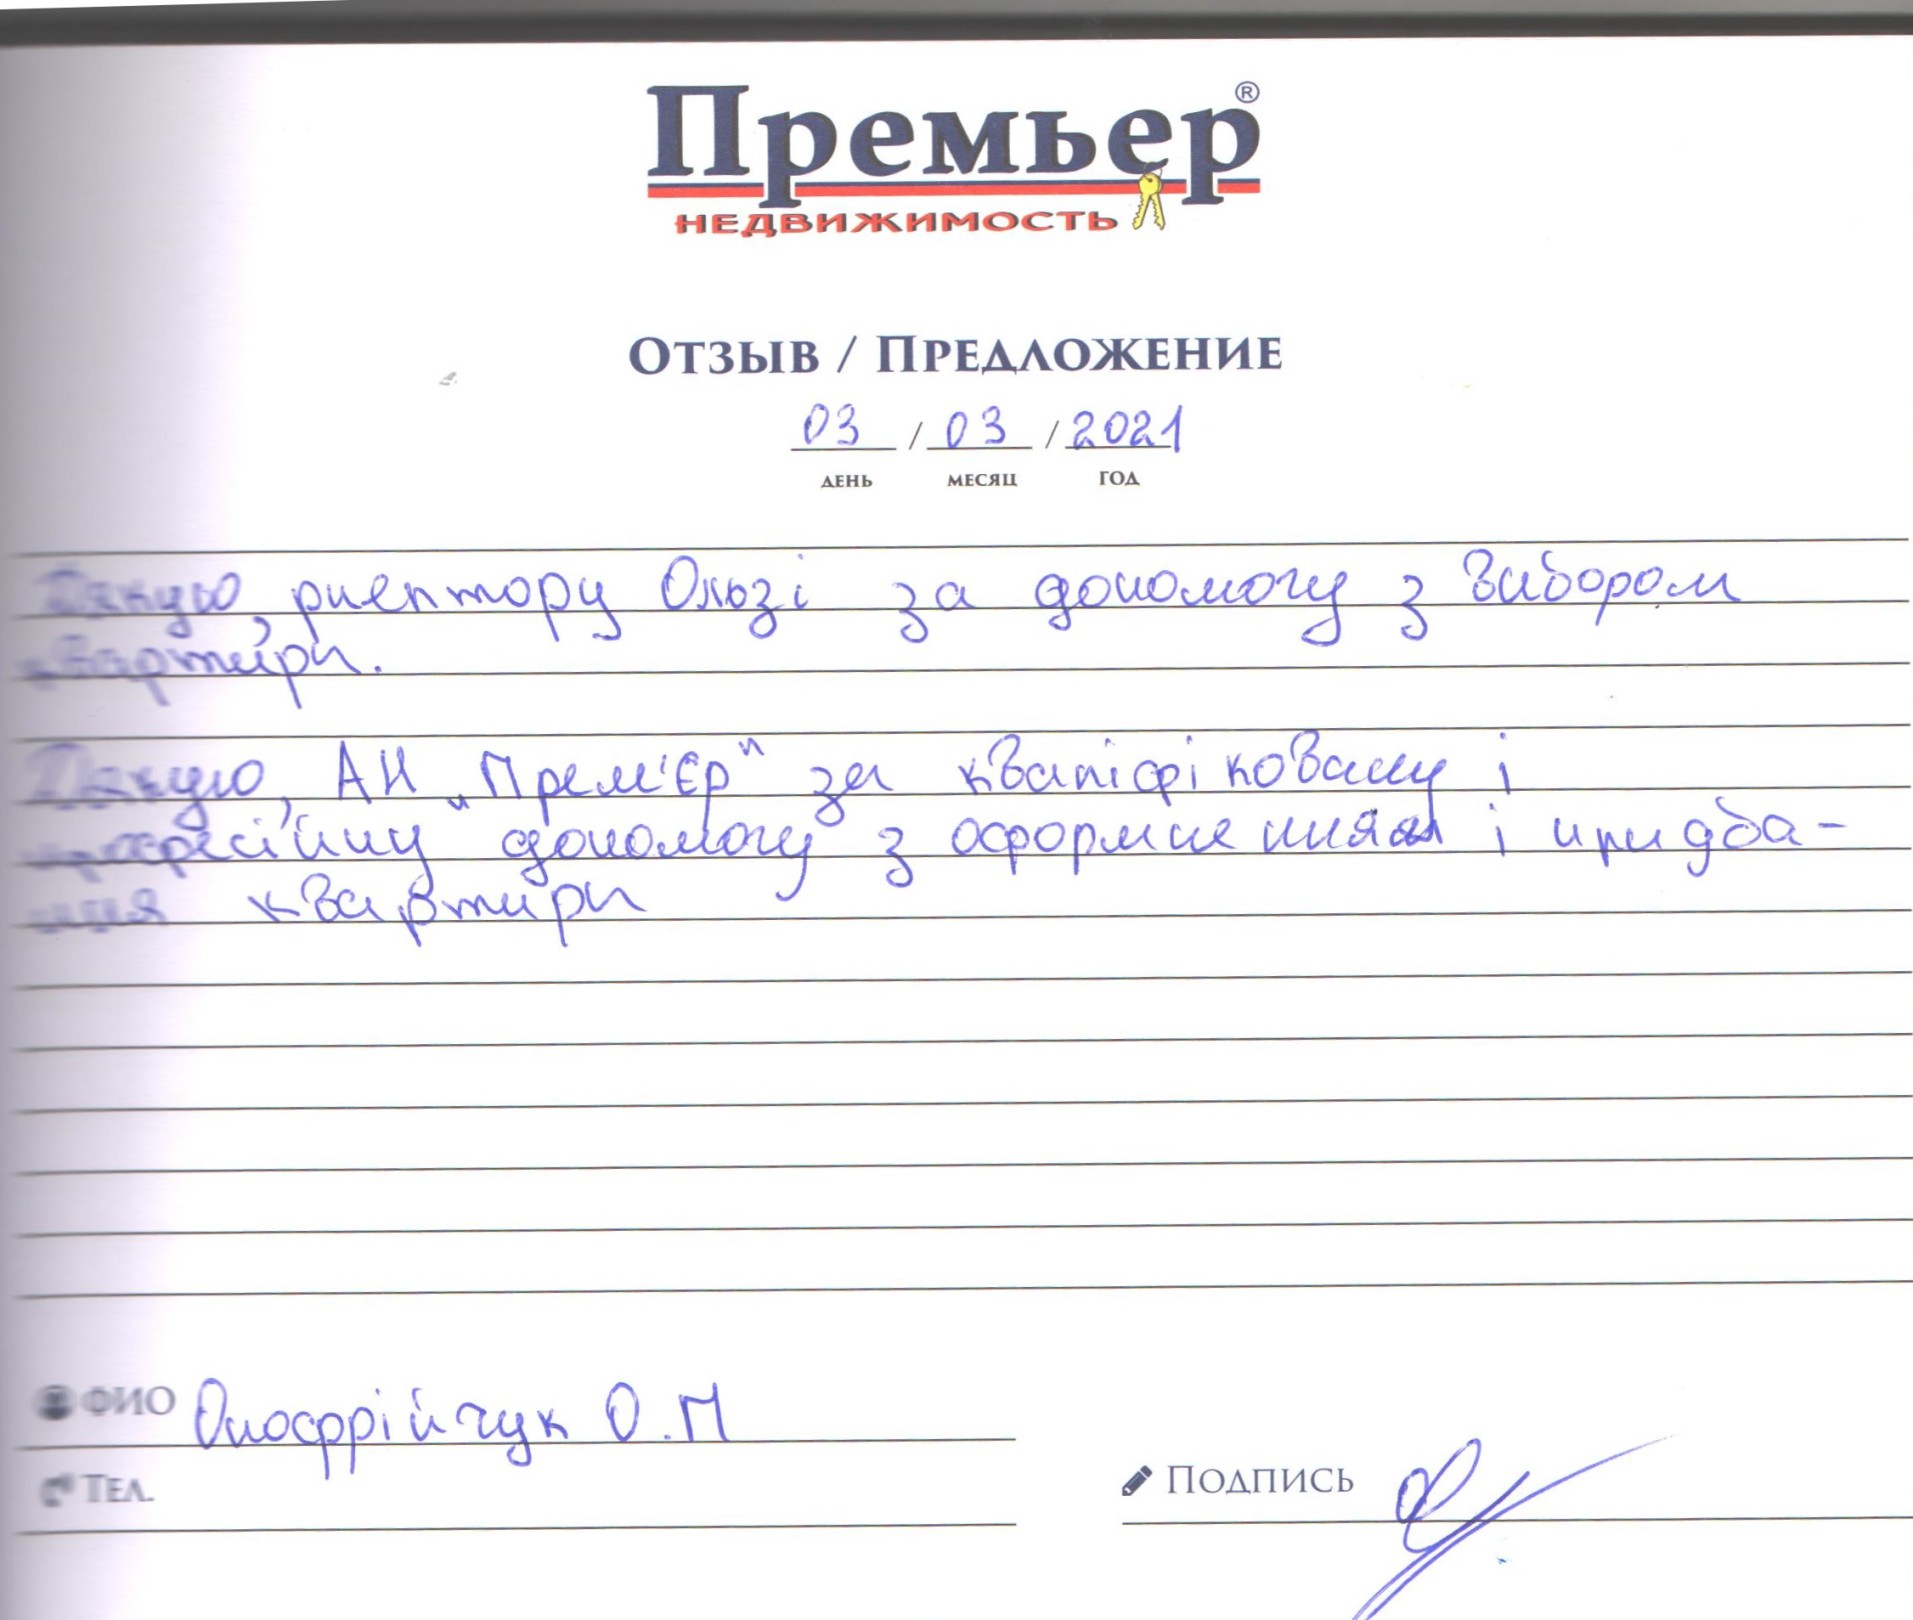 Премьер®
НЕДВИЖИМОСТЬ
ОТЗЫВ / ПРЕДЛОЖЕНИЕ
03 / 03 / 2021
ДЕНЬ МЕСЯЦ ГОД
Дякую, риелтору Ользі за допомогу з вибором
квартири.
Дякую, АН „Прем'єр" за кваліфіковану і
професійну допомогу з оформлення і придба-
ння квартири
ФИО Онофрійчук О.П
ТЕЛ.
ПОДПИСЬ